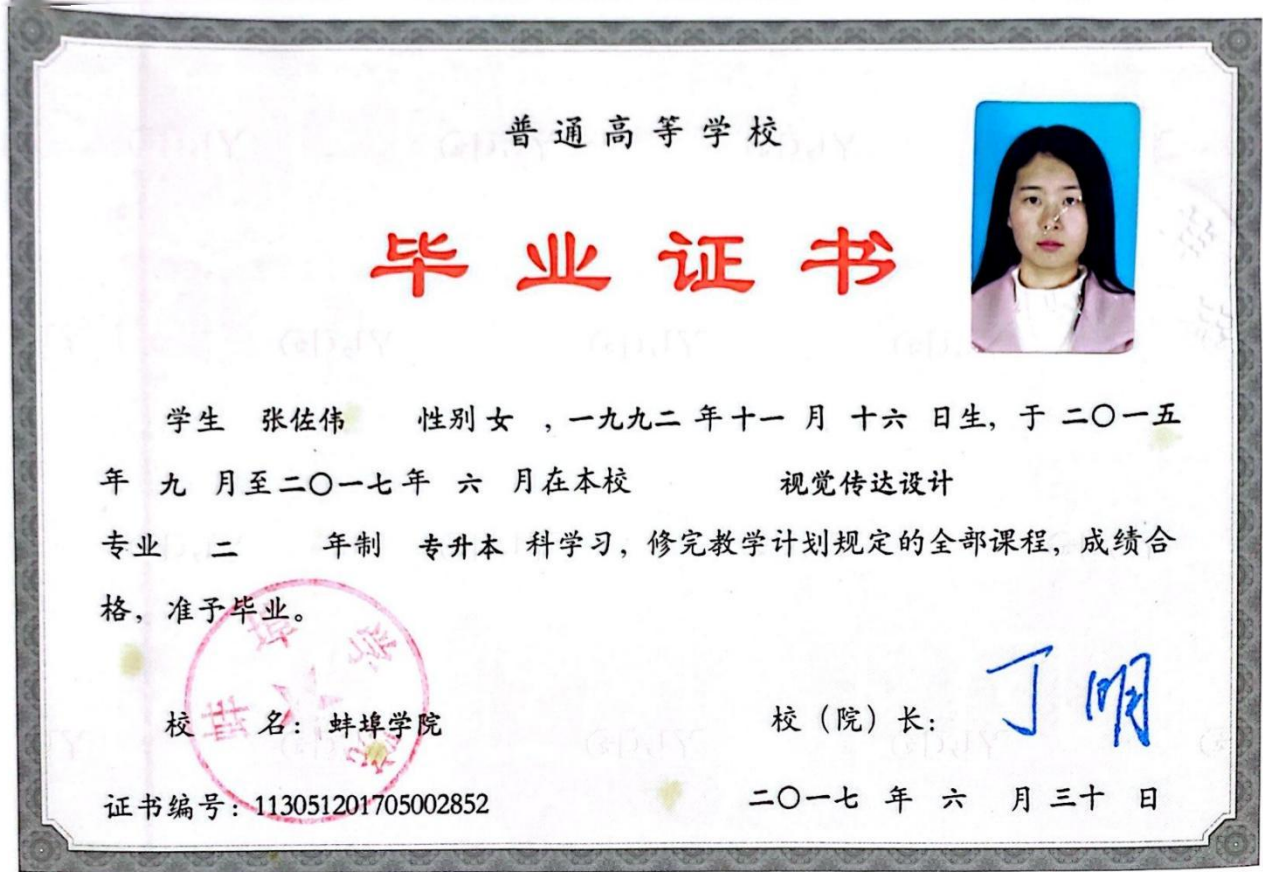 普通高等学校
毕业证书
学生 张佐伟 性别 女 ，一九九二 年 十一 月 十六 日生，于 二〇一五
年 九 月至 二〇一七 年 六 月在本校 视觉传达设计
专业 二 年制 专升本 科学习，修完教学计划规定的全部课程，成绩合
格，准予毕业。
校 名：蚌埠学院
校（院）长：丁明
证书编号：113051201705002852
二〇一七 年 六 月 三十 日
蚌埠学院